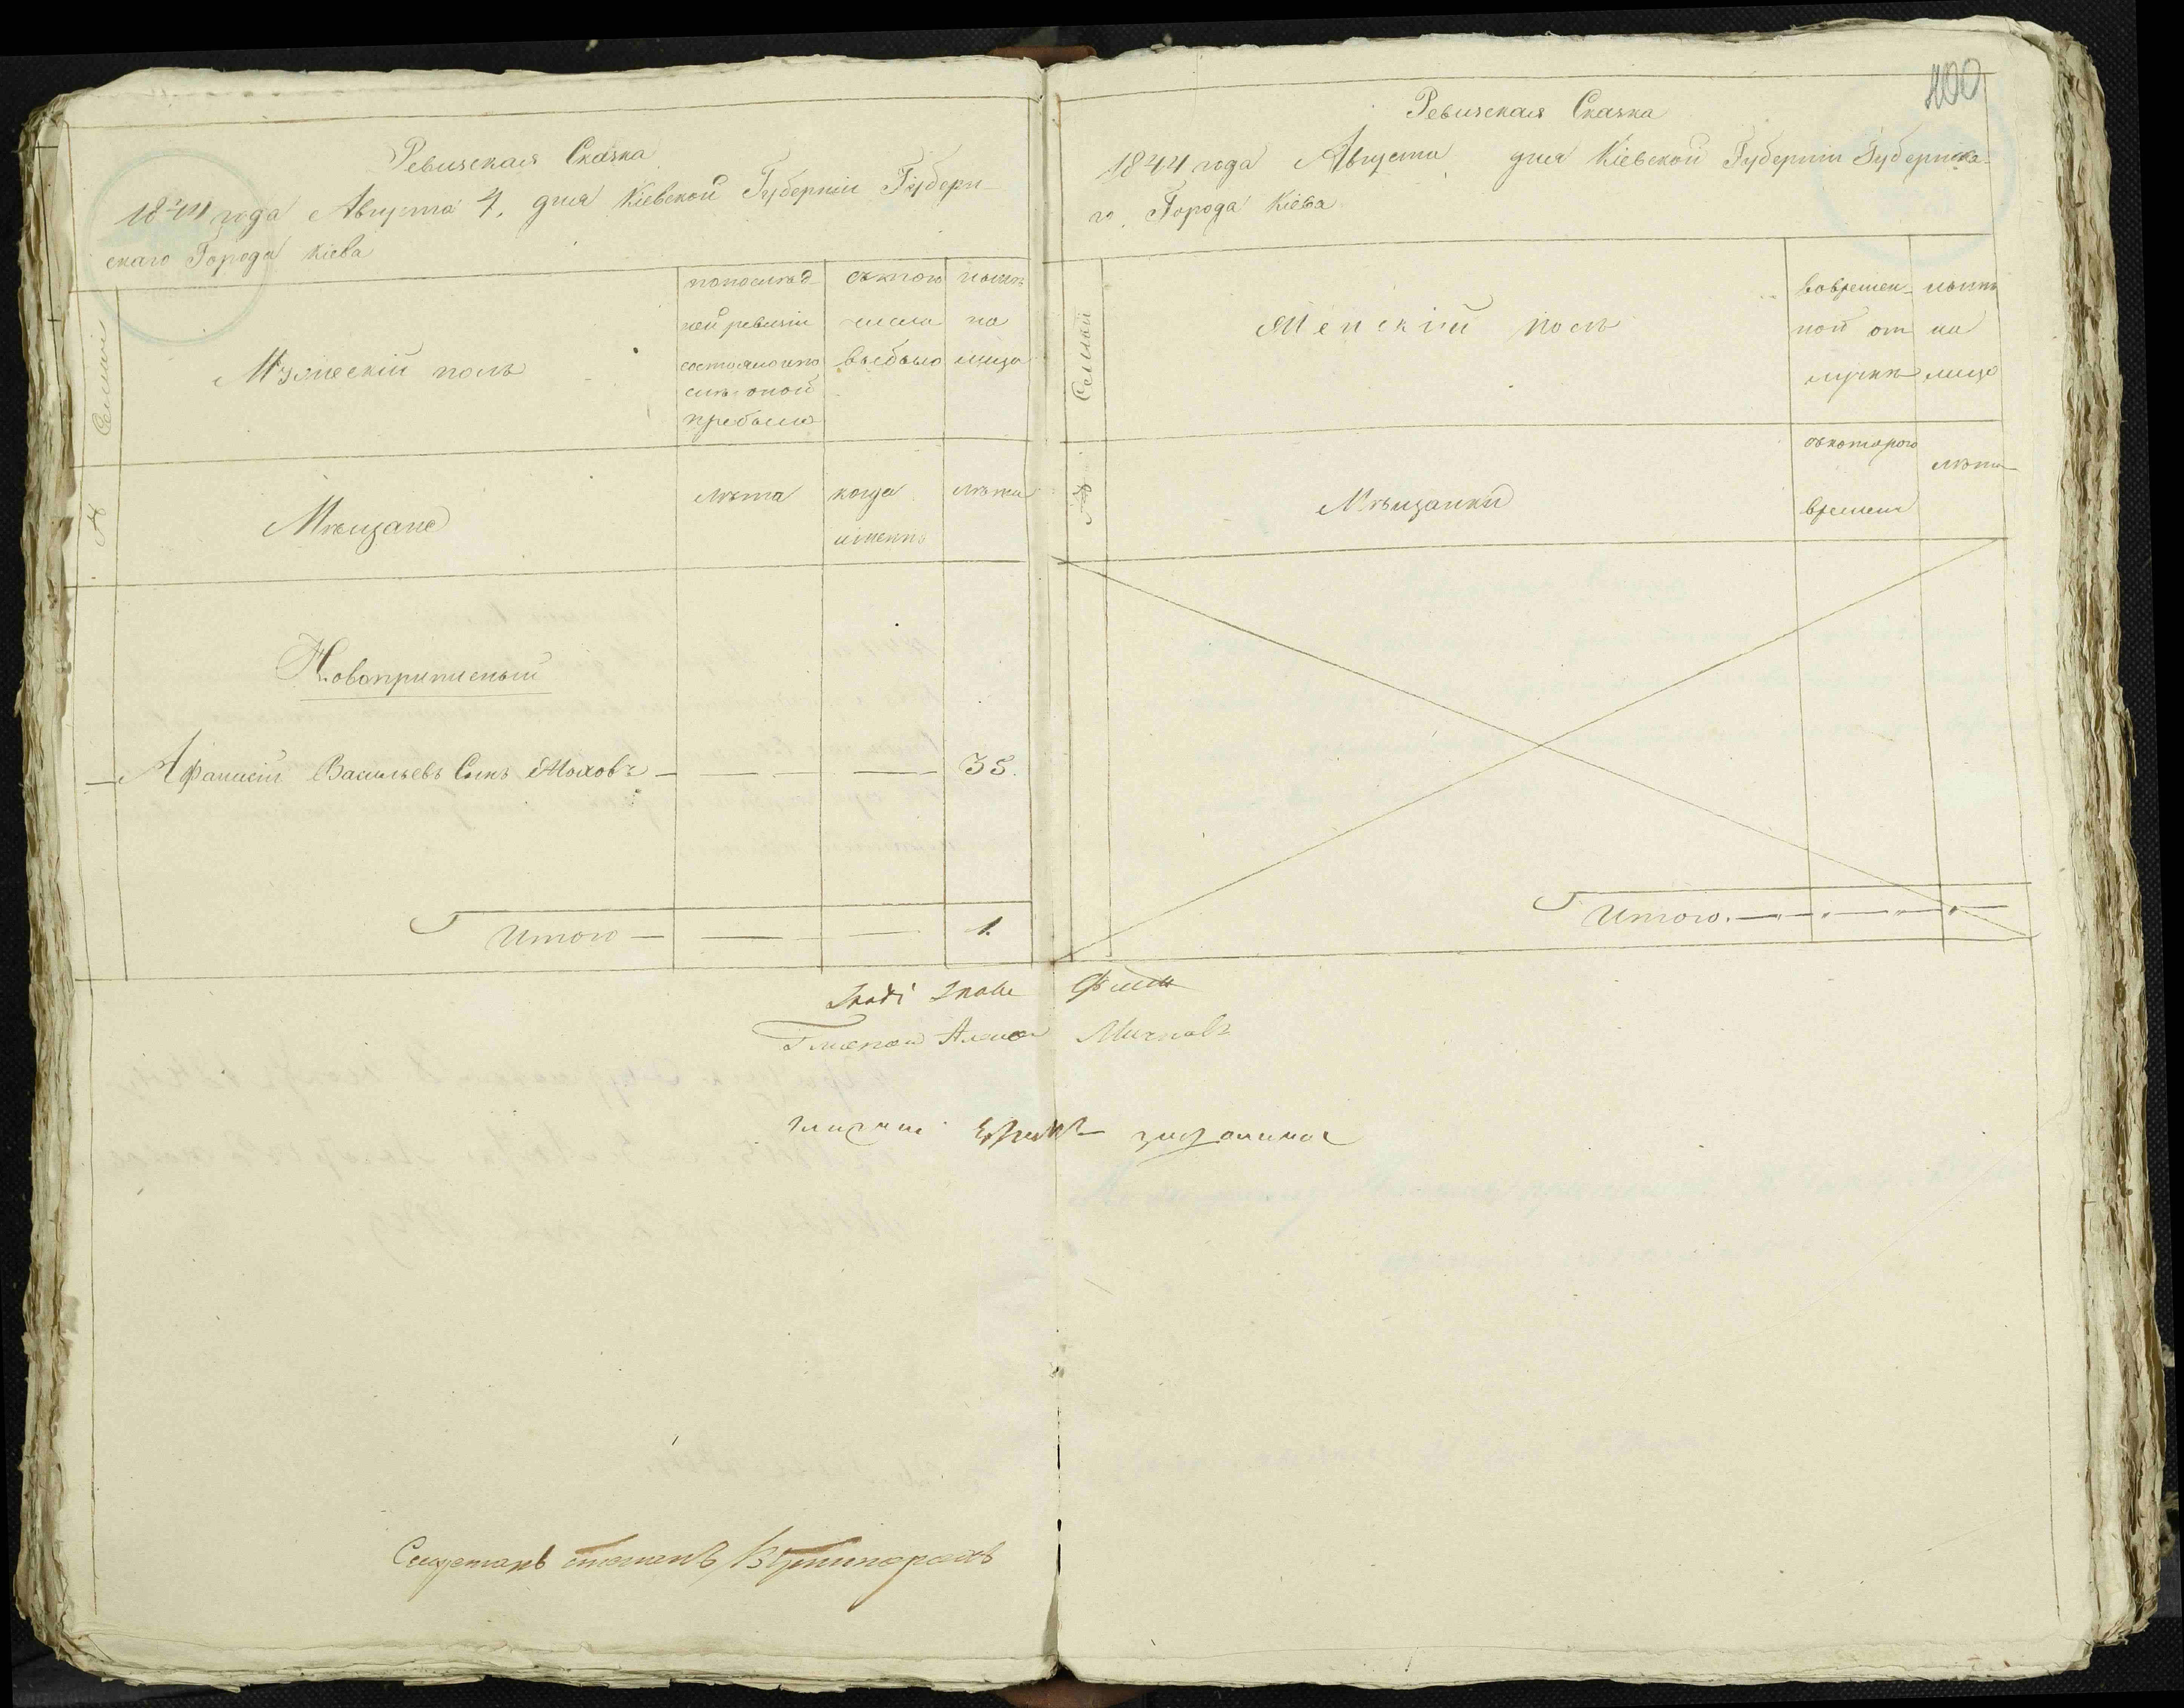 Ревизская Сказка
1844 года Августа 4. дня Кіевской Губерніи Губерн-
скаго Города Кіева
№ Семьи
Мужескій полъ
по послѣд-
ней ревизіи
состояло и по
слѣ оной
прибыло
изъ того
числа
выбыло
нынѣ
на
лицо
Мѣщане
лѣта
когда
именно
лѣта
Новоприписный
Афанасій Васильевъ Сынъ Моховъ — — — — 35.
Итого — — — 1.
400
Ревизская Сказка
1844 года Августа дня Кіевской Губерніи Губернска-
го Города Кіева
№ Семьи
Женскій полъ
во времен-
ной от
лучкѣ
нынѣ
на
лицо
Мѣщанки
съ котораго
времени
лѣта
Итого. — — — —
гласный